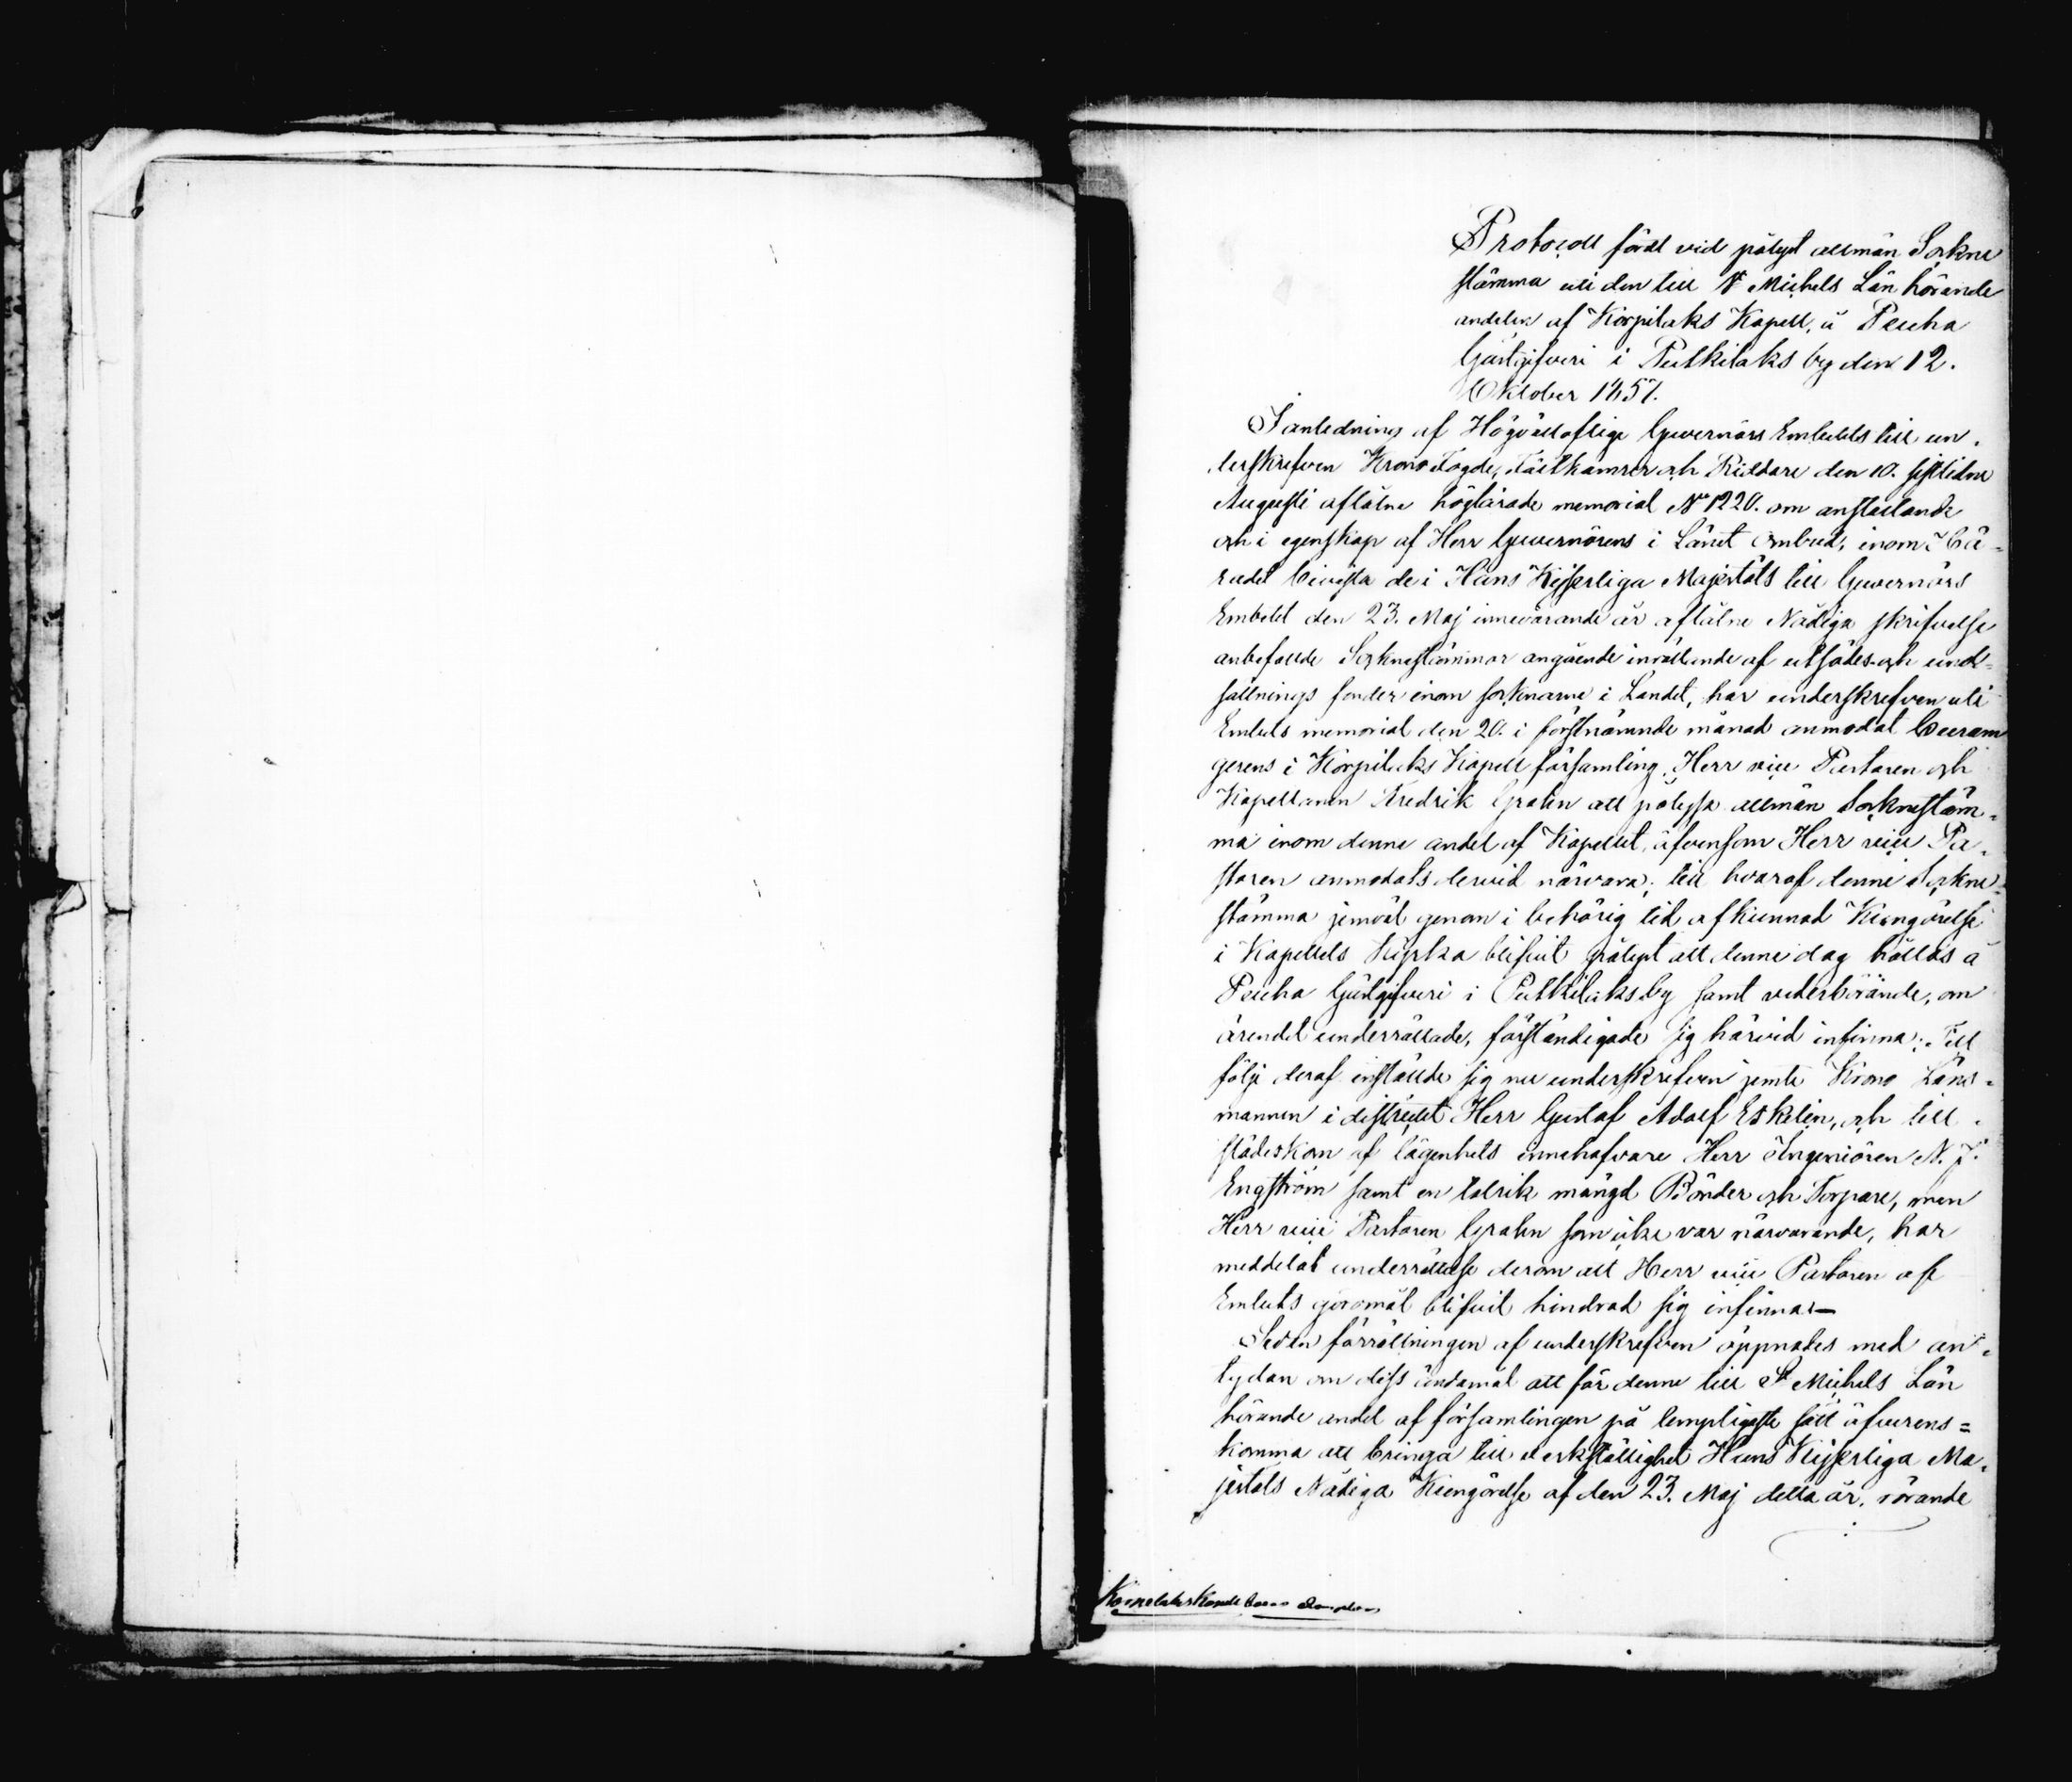 Protocoll fördt vid pålyst allmän Sockne
stämma uti den till St Michels Län hörande
andelen af Korpilaks Kapell, å Peuha
Gästgifveri i Putkilaks by den 12.
Oktober 1857.
I anledning af Högvällofliga Guvernörs Embetets till un-
derskrefven Krono Fogde, Fältkamrer och Riddare den 10. sistlidne
Augusti aflåtne höglärade memorial No 1220. om anstaltande
och i egenskap af Herr Guvernörens i Länet ombud, inom Hä-
radet bevista de i Hans Kejserliga Majestäts till Guvernörs
Embetet den 23. Maj innevarande år aflåtne Nådiga skrifvelse
anbefallde Socknestämmor angående inrättande af utsädes och und-
sättnings fonder inom socknarne i Landet, har underskrefven uti
Embets memorial den 20. i förstnämnde månad anmodat
gerens i Korpilaks Kapell församling, Herr vice Pastoren och
Kapellanen Fredrik Grahn att pålysa allmän Socknestäm-
ma inom denne andel af Kapellet, äfvensom Herr vice Pa-
storen anmodats dervid närvara; till hvaraf denne Sockne-
stämma jemväl genom i behörig tid afkunnad Kungörelse
i Kapellets Kyrka blifvit pålyst att denne dag hållas å
Peuha Gästgifveri i Putkilaks by samt vederbörande, om
ärendet underrättade, förständigade sig härvid infinna; Till
följe deraf inställde sig nu underskrefven jemte Krono Läns-
mannen i distrectet Herr Gustaf Adolf Eskelin, och till-
städeskom af lägenhets innehafvare Herr Ingeniören N. J.
Engström samt en talrik mängd Bönder och Torpare, men
Herr vice Pastoren Grahn som icke var närvarande, har
meddelat underrättelse derom att Herr vice Pastoren af
Embets göromål blifvit hindrad sig infinna.—
Sedan förrättningen af underskrefven öppnades med an-
tydan om dess ändamål att för denne till St Michels Län
hörande andel af församlingen på lempligaste sätt öfverens=
komma att bringa till verkställighet Hans Kejserliga Ma-
jestäts Nådiga Kungörelse af den 23. Maj detta år, rörande